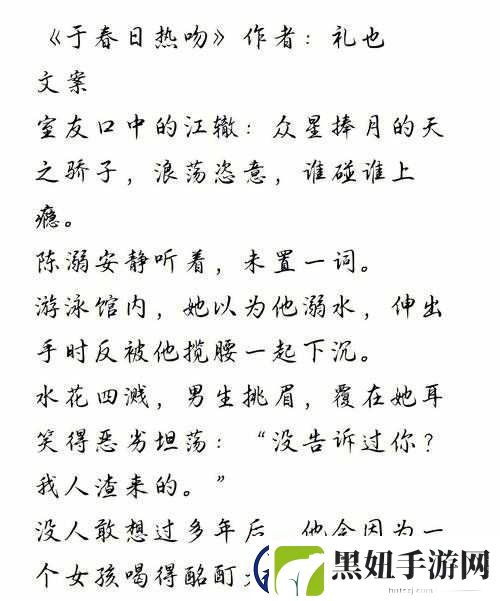 《于春日热吻》作者：礼也
文案
室友口中的江辙：众星捧月的天
之骄子，浪荡恣意，谁碰谁上
瘾。
陈溺安静听着，未置一词。
游泳馆内，她以为他溺水，伸出
手时反被他揽腰一起下沉。
水花四溅，男生挑眉，覆在她耳
笑得恶劣坦荡：“没告诉过你？
我人渣来的。”
没人敢想过多年后，他会因为一
个女孩喝得酩酊
黑妞手游网